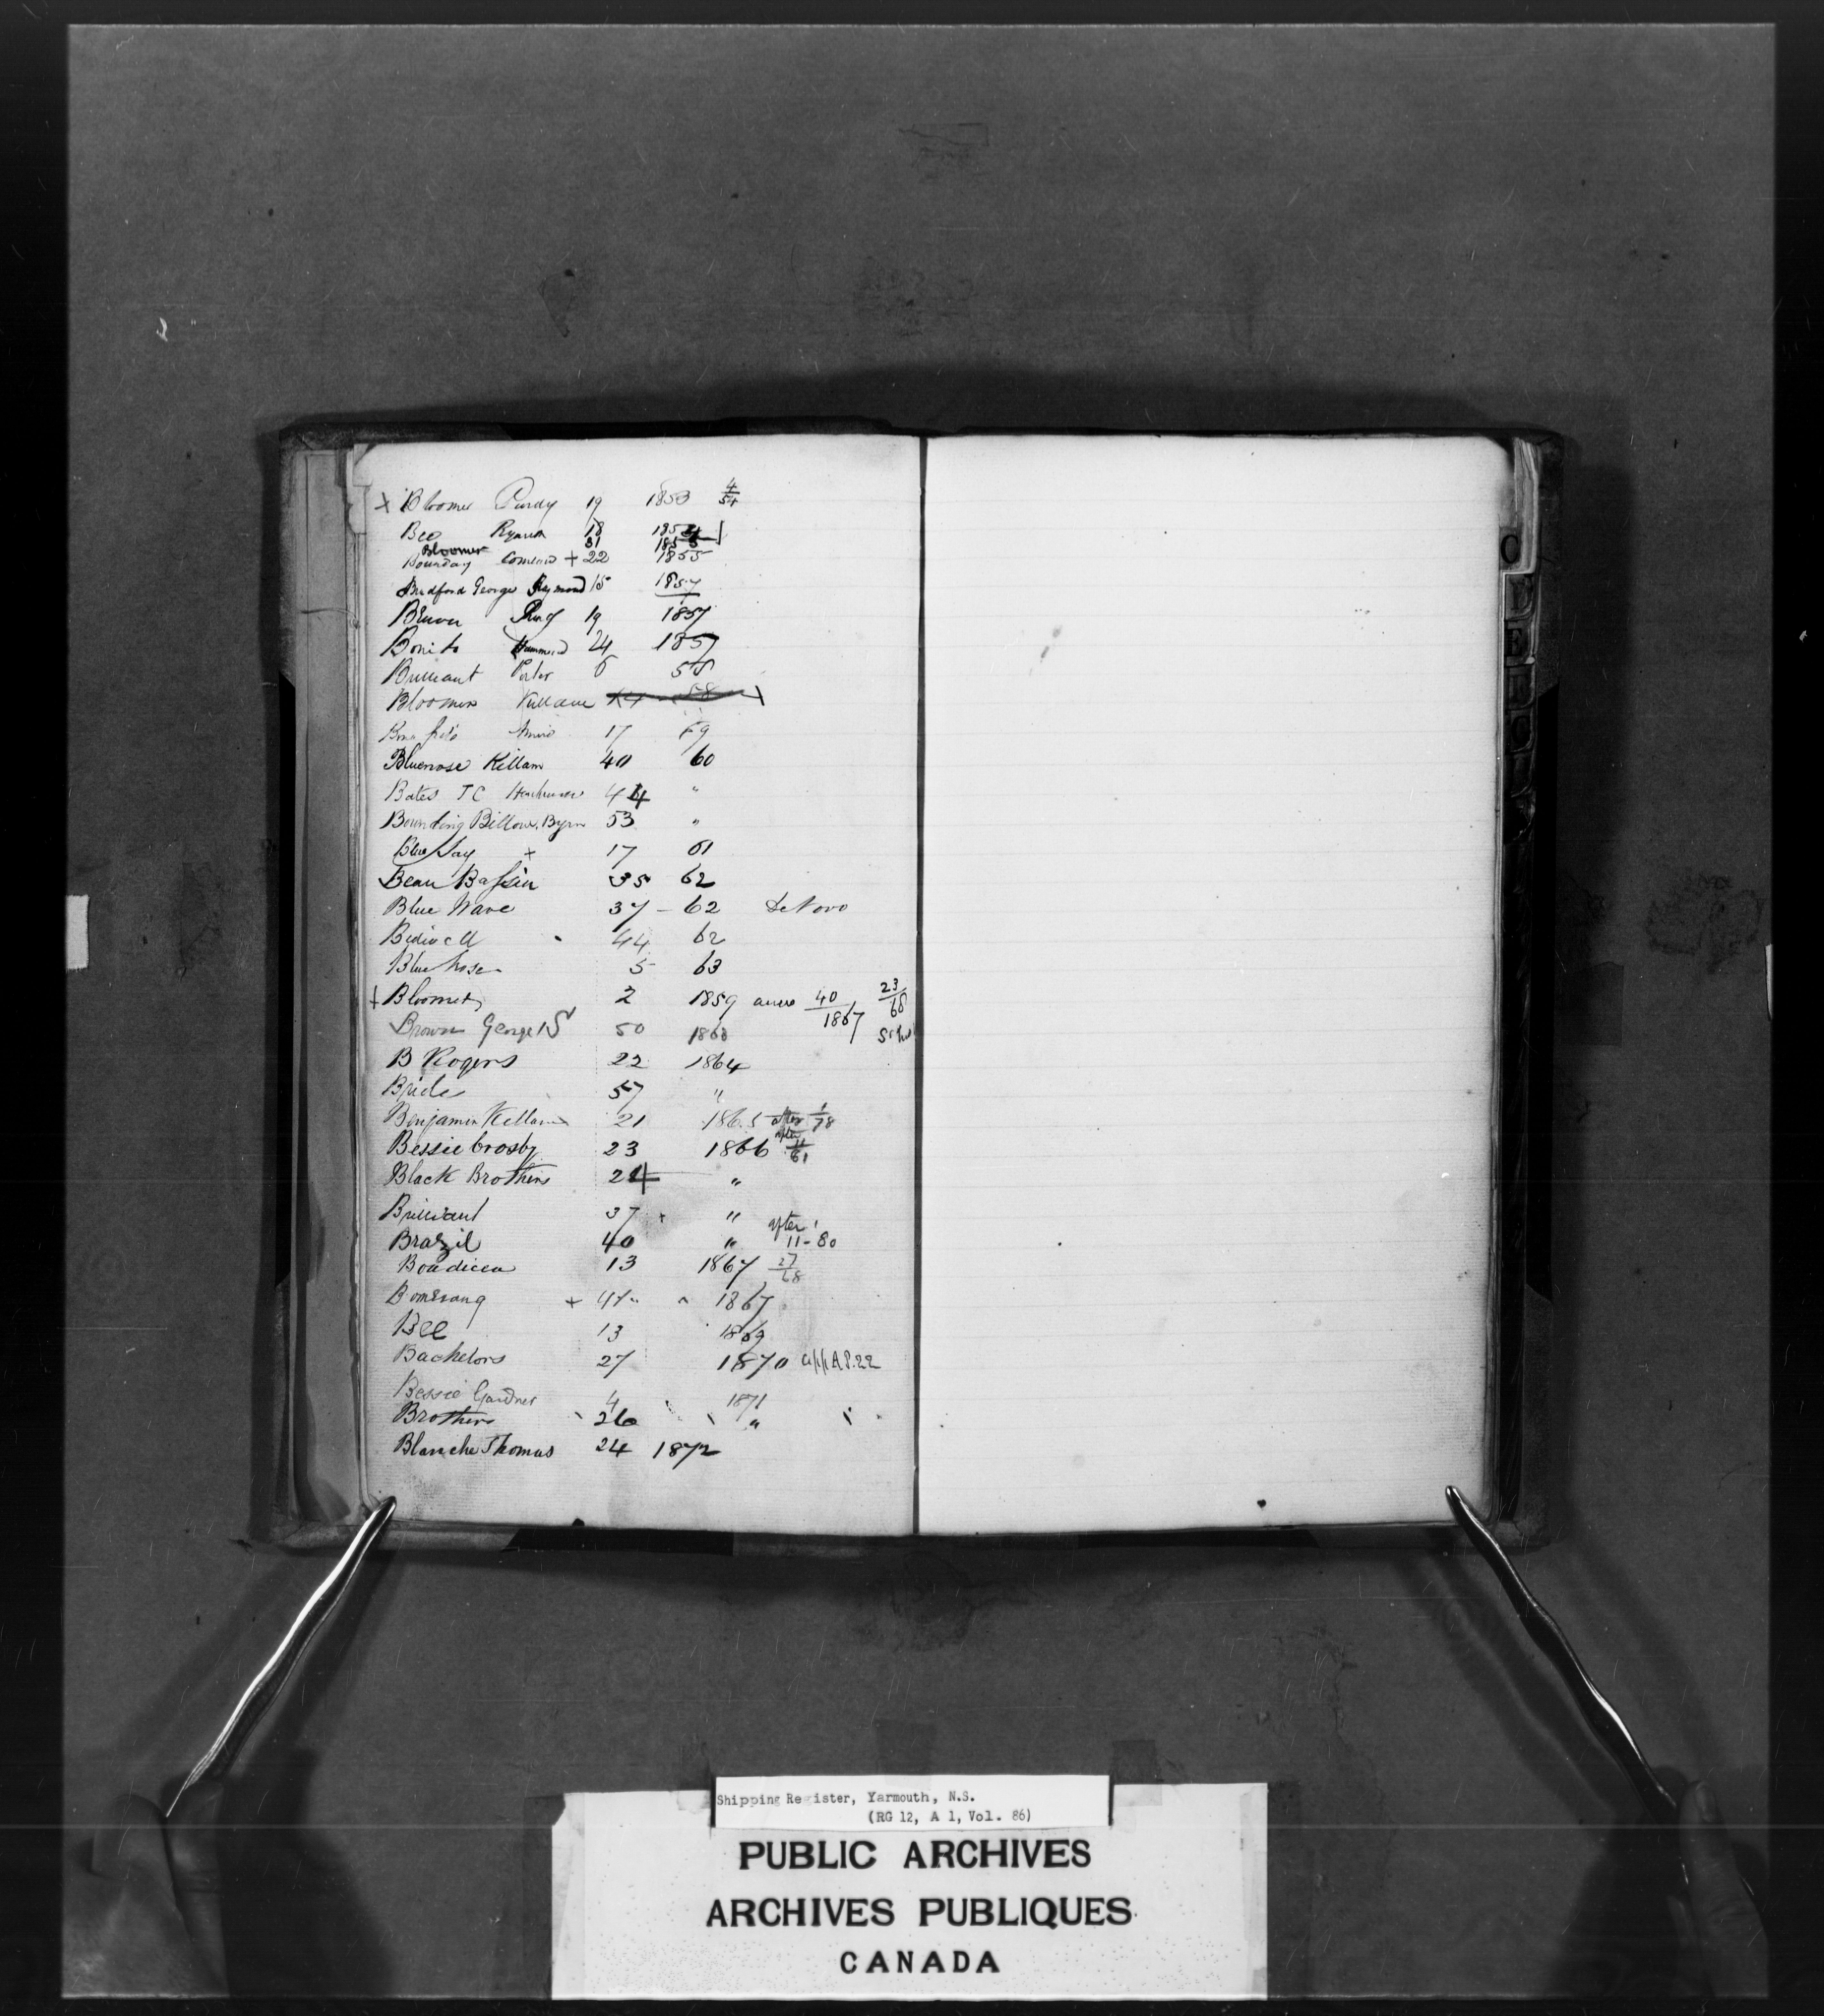 + Bloomer Purdy 19 1853 4/54
Beo Ryerson 18 1854
Bloomer 31 1855
Bourday + 22 1855
Bradford George Raymond 15 1857
Ring 19 1857
Bonito Hammond 24 1857
Brilliant Porter 6 58
Bloomer Killam 58
17 59
Bluenose Killam 40 60
Bates T C 44 "
Bounding Billow, Byrn 53 "
Blue Jay + 17 61
Beau Bassin 35 62
Blue Wave 37 - 62 De Novo
44 62
Blue nose 5 63
+ Bloomer 2 1859 40/1867 23/68
Brown George S 50 1863
B Rogers 22 1864
Bride 57 "
Benjamin Killam 21 1865 after 1/78
Bessie Crosby 23 1866 after 11/61
Black Brothers 24 "
Brilliant 37 "
Brazil 40 " after 11-80
Boadicea 13 1867 27/68
Bomerang + 1867
Bee 13 1869
Bachelors 27 1870 app A P.22
Bessie Gardner 4 1871
Brothers 26 "
Blanche Thomas 24 1872
C
D
E
Shipping Register, Yarmouth, N.S.
(RG 12, A 1, Vol. 86)
PUBLIC ARCHIVES
ARCHIVES PUBLIQUES
CANADA